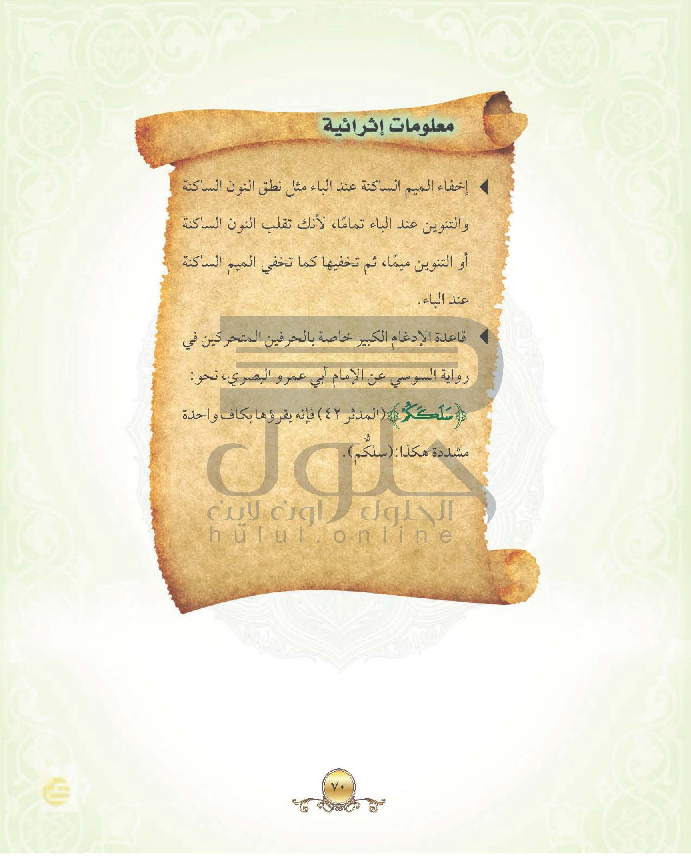 معلومات إثرائية
إخفاء الميم الساكنة عند الباء مثل نطق النون الساكنة
والتنوين عند الباء تمامًا، لأنك تقلب النون الساكنة
أو التنوين ميمًا، ثم تخفيها كما تخفي الميم الساكنة
عند الباء.
قاعدة الإدغام الكبير خاصة بالحرفين المتحركين في
رواية السوسي عن الإمام أبي عمرو البصري، نحو:
﴿سَلَكَكُمْ﴾ (المدثر ٤٢) فإنه يقرؤها بكاف واحدة
مشددة هكذا: (سلكُّم).
حلول
الحلول اون لاين
hulul.online
٧٠